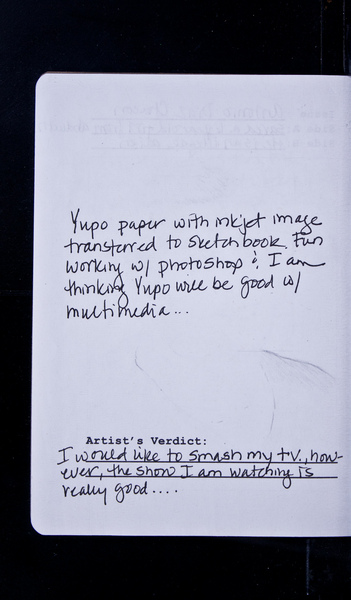 Yupo paper with inkjet image
transferred to sketchbook. Fun
working w/ photoshop & I am
thinking Yupo will be good w/
multimedia...
Artist's Verdict:
I would like to smash my t.v., how-
ever, the show I am watching is
really good....